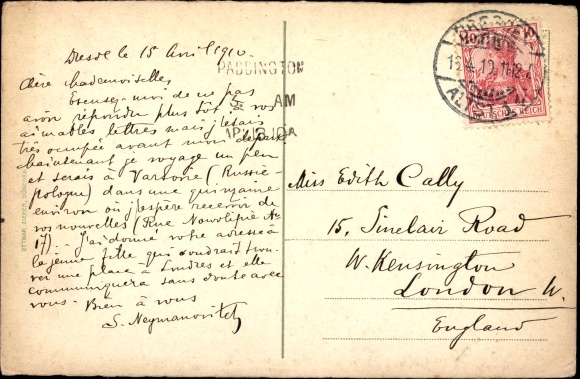 Dresde le 15 Avril 1910.
Chère Mademoiselle,
Excusez-moi de ne pas
avoir répondre plus tôt à vos
aimables lettres mais j'étais
très occupée avant mon départ
Maintenant je voyage un peu
et serais à Varsovie (Russie-
pologne) dans une quinzaine
environ où j'espère recevoir de
vos nouvelles (Rue Nowolipie No
17). J'ai donné votre adresse à
la jeune fille qui voudrait trou-
ver une place à Londres et elle
communiquera sans doute avec
vous. Bien à vous
S. Neymanovitch
PADDINGTON
AM
AP 18 10
DRESDEN
ALTST.
DEUTSCHES REICH
10
Miss Edith Cally
15, Sinclair Road
W. Kensington
London W.
England
OTTMAR ZIEHER, MÜNCHEN